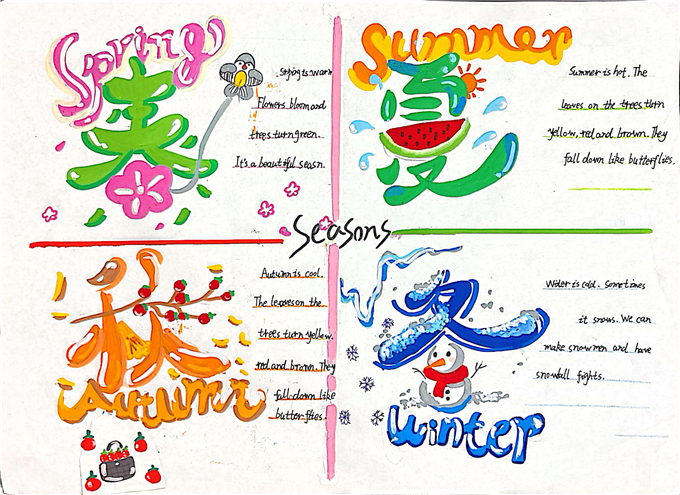 Spring
春
Spring is warm
Flowers bloom and
trees turn green.
It's a beautiful seasn.
Summer
夏
Summer is hot. The
leaves on the trees turn
yellow, red and brown. They
fall down like butterflies.
Seasons
秋
Autumn
Autumn is cool.
The leaves on the
trees turn yellow.
red and brown. They
fall down like
butterflies.
冬
Winter
Water is cold. Sometimes
it snows. We can
make snowmen and have
snowall fights.